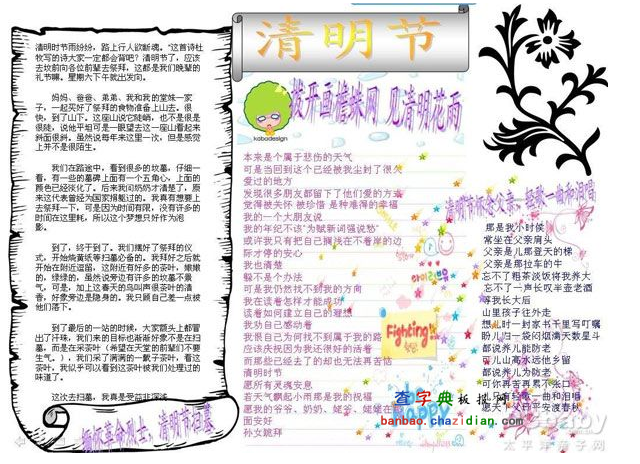 清明时节雨纷纷,路上行人欲断魂。"这首诗杜
牧写的诗大家一定都会背吧?清明节了,应该
去坟前向各位前辈去祭拜,这都是我们晚辈的
礼节嘛。星期六下午就出发向。
妈妈、爸爸、弟弟、我和我的堂妹一家
子,一起买好了祭拜的食物准备上山去。很
快,到了山下。这座山说它陡峭,也不是很是
很陡,说他平坦可是一眼望去这一座山看起来
斜面很斜。虽然说每年来这里一次,但是感觉
上并不是很陌生。
我们在路途中,看到很多的坟墓,仔细一
看,有一些的墓碑上面有一个五角心,上面的
颜色已经淡化了。后来我问奶奶才清楚了,原
来这代表曾经为国家捐躯过的。我真有想要上
去祭拜一下,可是因为时间有限,没有许多的
时间在这里耗,所以这个梦想只好作为泡
影。
到了,终于到了。我们摆好了祭拜的仪
式,开始烧黄纸等扫墓必备的。我拜好之后就
开始在附近逗留,这附近有好多的茶叶,嫩嫩
的,绿绿的,虽然说旁边有许多的坟墓不景
气,可是,加上这春天的鸟叫声很茶叶的清
香,好象旁边是隐身的。我只顾自己差一点被
他们落下。
到了最后的一站的时候,大家额头上都冒
出了汗珠,我们来的目标也渐渐好象不是在扫
墓,而是在采茶叶(希望在天堂的前辈们不要
生气。),我们采了满满的一麒子茶叶,看这
茶叶,我似乎可以看到这茶叶被我们处理过的
味道了。
这次去扫墓,我真是受益非浅
缅怀革命烈士、清明节扫墓
清明节
拨开画悄妹网 见清明花雨
kobodesign
本来是个属于悲伤的天气
可是当回到这个已经被我尘封了很久
爱过的地方
发现很多朋友都留下了他们爱的方式
觉得被关怀 被珍惜 是种难得的幸福
我的一个大朋友说
我的年纪不该"为赋新词强说愁"
或许我只有把自己搁浅在不着岸的边
际才停的安心
我也清楚
躲不是个办法
可是我仍然找不到我的方向
我在读着怎样才能成功
读着如何建立自己的理想
我劝自己感动着
我恨自己为何找不到属于我的路
应该庆祝因为我还很好的活着
而那些已经去了的却也无法再苦估
清明时节
愿所有灵魂安息
若天气飘起小雨那是我的祝福
愿我的爷爷、奶奶、姥爷、姥姥在
面安好
孙文跳拜
Fighting
happy
清明节怀念父亲--轻歌一曲和泪唱
那是我小时候
常坐在父亲肩头
父亲是儿那登天的梯
父亲是那拉车的牛
忘不了粗茶淡饭将我养大
忘不了一声长叹半壶老酒
等我长大后
山里孩子往外走
想儿时一封家书千里写叮嘱
盼儿归一袋闷烟满天数星斗
都说养儿能防老
可儿山高水远他乡留
都说养儿为防老
可你再苦再累不张口
愿天下父母平安渡春秋
查字典板报网
banbao.chazidian.com
太平洋亲子网